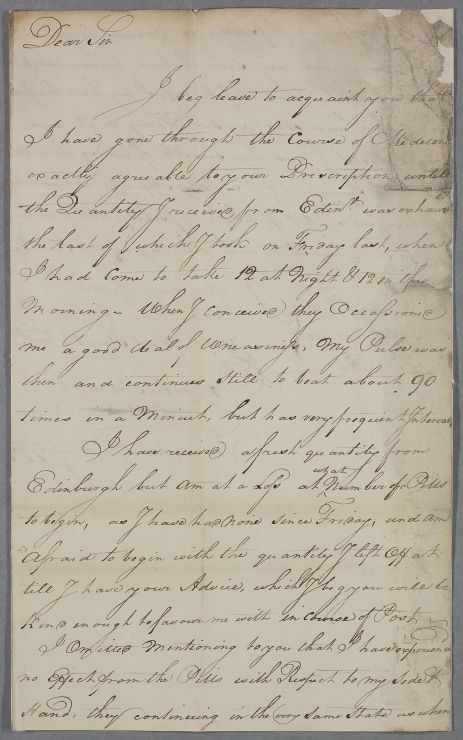 Dear Sir
I beg leave to acquaint you that
I have gone through the Course of Medecin
exactly agreeable to your Prescription, until
the Quantity I received from Edinr. was exhaus
the last of which I took on Friday last, when
I had come to take 12 at Night & 12 in the
Morning - When I conceived they Occassioned
me a good deal of Uneasiness, My Pulse was
then and continues still to beat about 90
times in a Minuet, but has very frequent Interval
I have received a fresh quantity from
Edinburgh but am at a Loss at what Number of Pills
to begin, as I have had none since Friday, and am
afraid to begin with the quantity I left off at
till I have your Advice, which I beg you will be
Kind enough to favour me with in course of Post
I Omitted Mentioning to you that I have experienc
no Effect from the Pills with Respect to my Side &
Hand, they continueing in the very same State as when